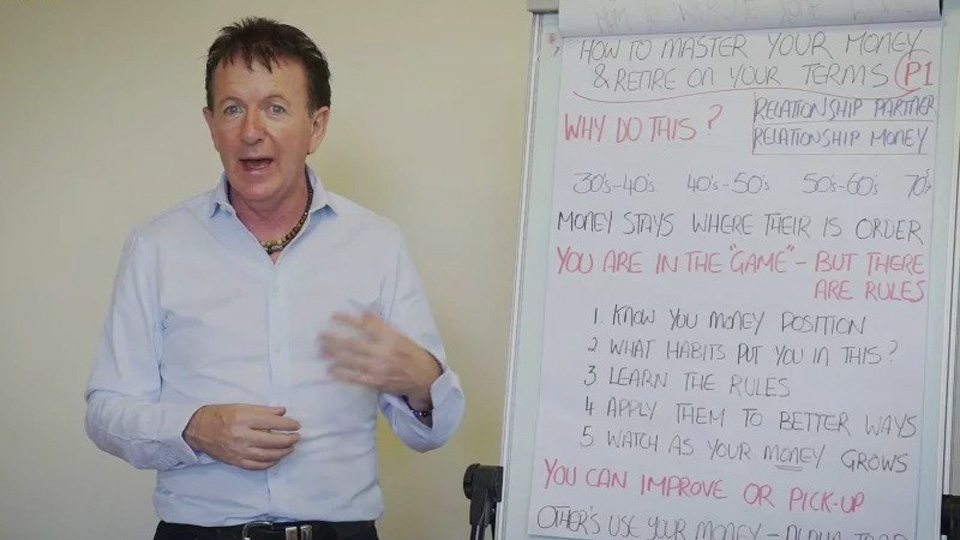 HOW TO MASTER YOUR MONEY
& RETIRE ON YOUR TERMS P1
RELATIONSHIP PARTNER
WHY DO THIS?
RELATIONSHIP MONEY
30's-40's 40's-50's 50's-60's 70's
MONEY STAYS WHERE THEIR IS ORDER
YOU ARE IN THE "GAME" - BUT THERE
ARE RULES
1. KNOW YOU MONEY POSITION
2 WHAT HABITS PUT YOU IN THIS?
3 LEARN THE RULES
4 APPLY THEM TO BETTER WAYS
5 WATCH AS YOUR MONEY GROWS
YOU CAN IMPROVE OR PICK-UP
OTHER'S USE YOUR MONEY -